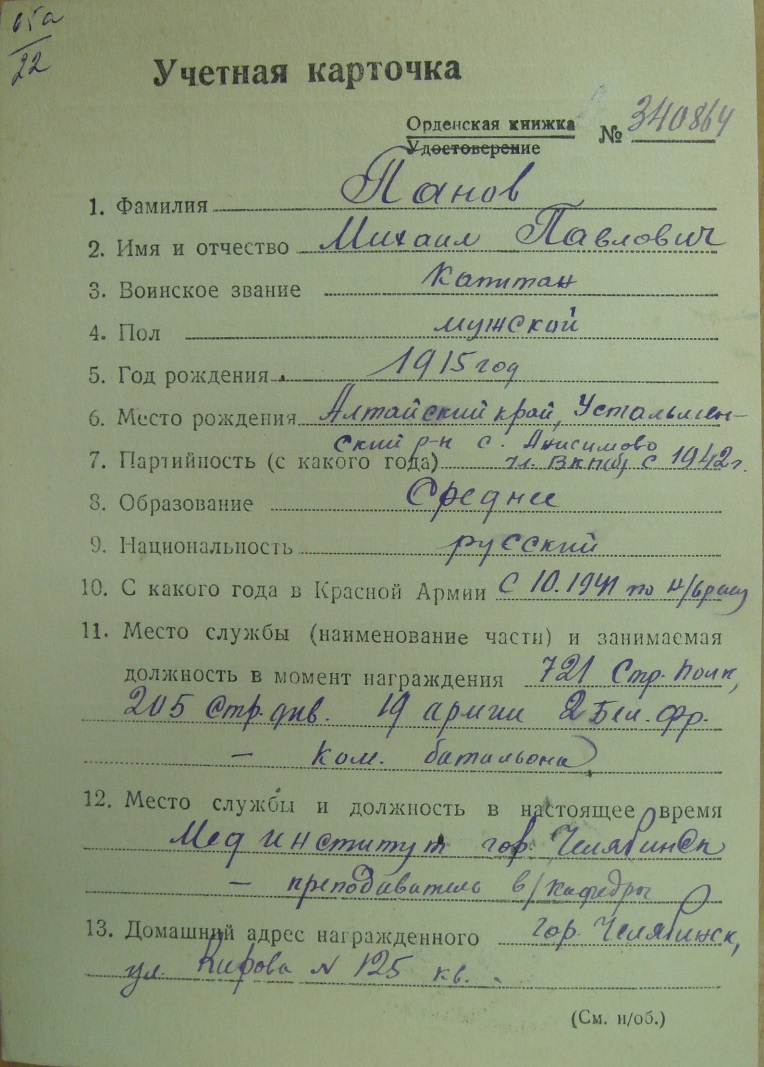 22
Учетная карточка
Орденская книжка
Удостоверение
№ 340864
1. Фамилия Панов
2. Имя и отчество Михаил Павлович
3. Воинское звание Капитан
4. Пол мужской
5. Год рождения 1915 год
6. Место рождения Алтайский край, Усталымен-
ский р-н с. Анисимово
7. Партийность (с какого года) чл. ВКП(б) с 1942 г.
8. Образование Среднее
9. Национальность русский
10. С какого года в Красной Армии С 10.1941 по н/время
11. Место службы (наименование части) и занимаемая
должность в момент награждения 721 Стр. Полк,
205 Стр. див. 19 армии 2 Бел. Фр.
— Ком. батальона
12. Место службы и должность в настоящее время
Мед институт гор. Челябинск
— преподаватель в/кафедры
13. Домашний адрес награжденного гор. Челябинск,
ул. Кирова N 125 кв.
(См. н/об.)